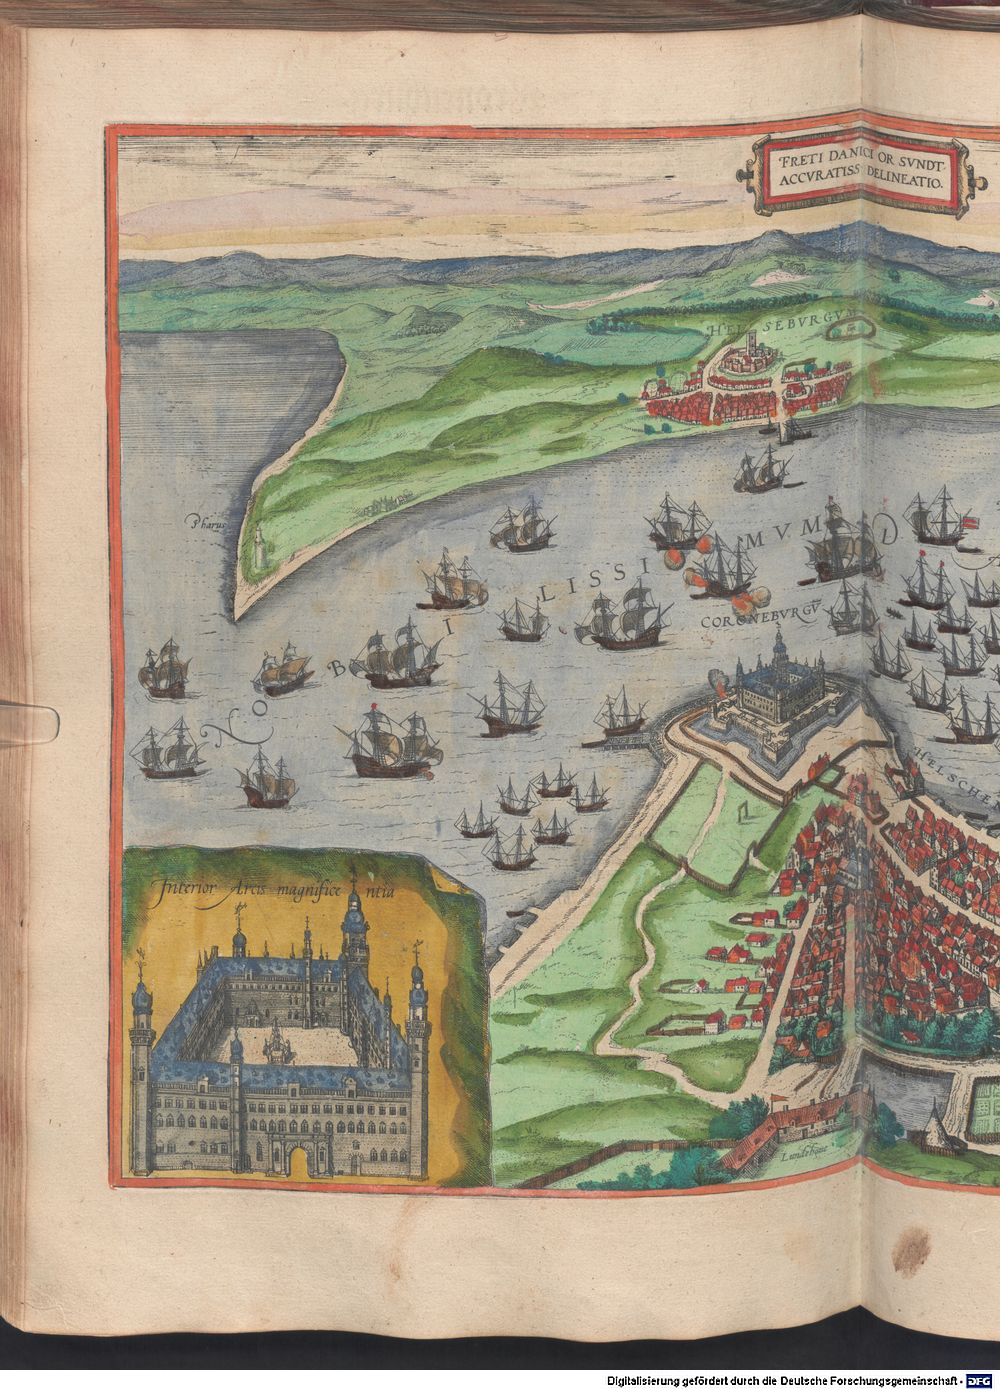 FRETI DANICI OR SVNDT
ACCVRATISS DELINEATIO.
HELSEBVRGVM
Pharus
NOBILISSIMVM D
CORONEBVRGṼ
HELSCHE
Interior Arcis magnificentia
Digitalisierung gefördert durch die Deutsche Forschungsgemeinschaft - DFG